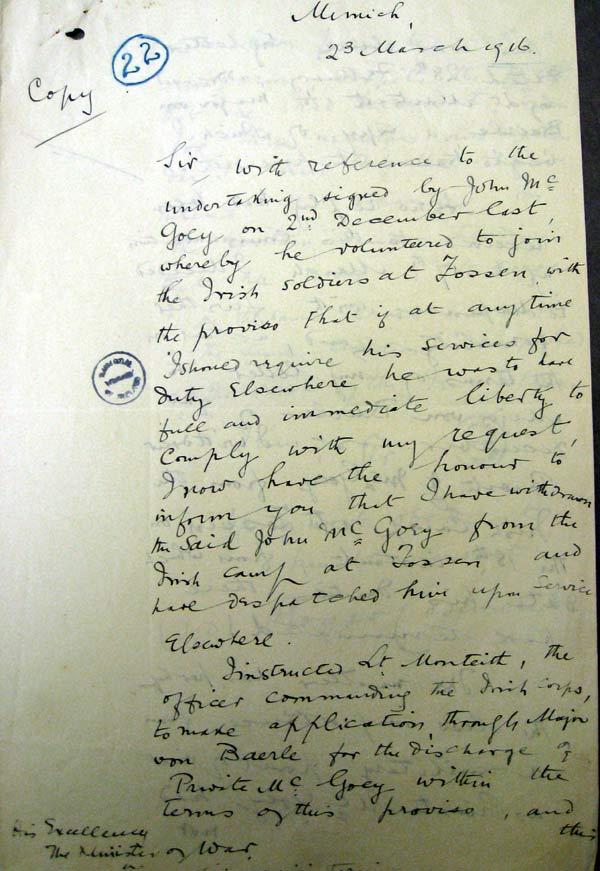 Munich,
23 March 1916.
22
Copy
Sir, with reference to the
undertaking signed by John Mc
Goey on 2nd December last,
whereby he volunteered to join
the Irish soldiers at Zossen, with
the proviso that if at any time
I should require his services for
duty Elsewhere he was to have
full and immediate liberty to
comply with my request,
I now have the honour to
inform you that I have withdrawn
the said John Mc Goey from the
Irish camp at Zossen and
have despatched him upon service
Elsewhere.
I instructed Lt. Monteith, the
officer commanding the Irish Corps,
to make application through Major
von Baerle for the discharge of
Private Mc Goey within the
terms of this proviso, and
this
His Excellency
The Minister of War.